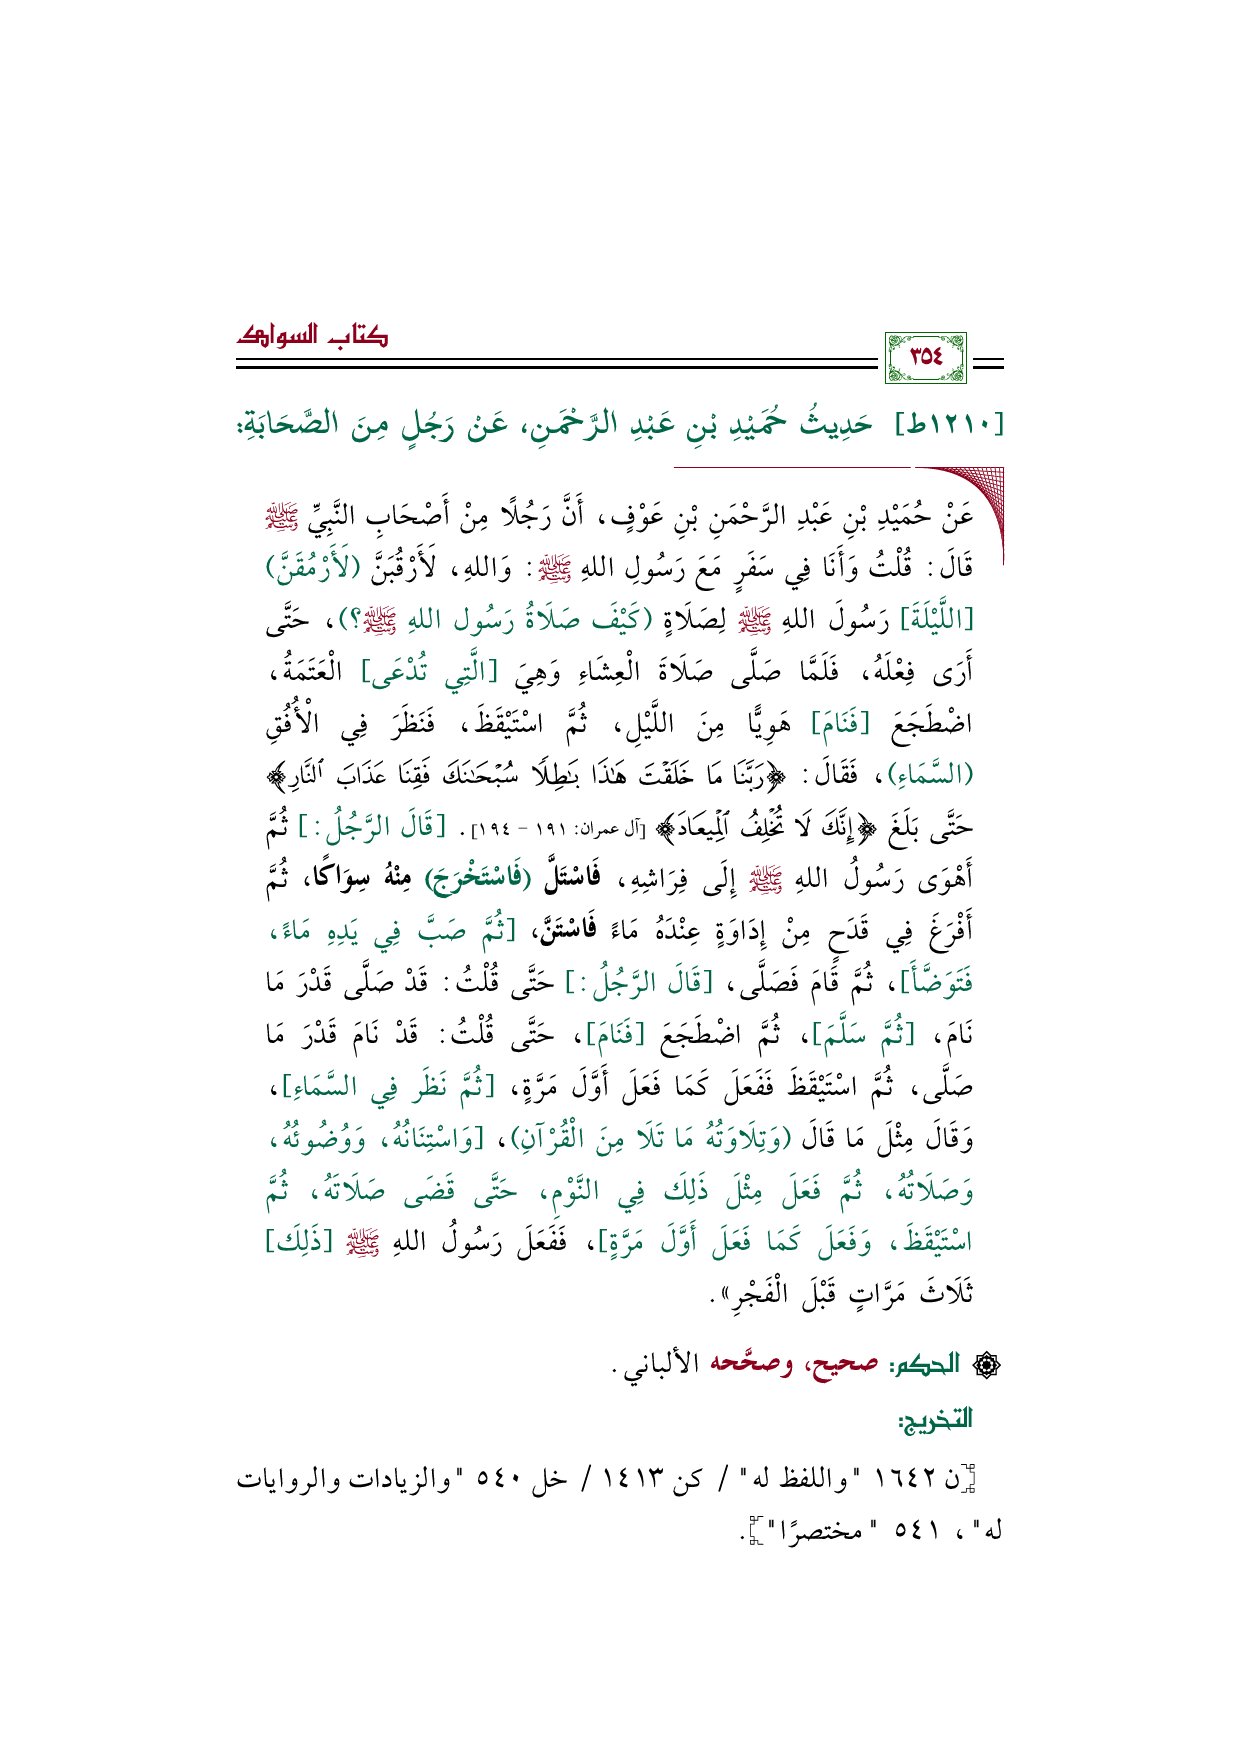 كتاب السواك
٣٥٤
[١٢١٠ط] حَدِيثُ حُمَيْدِ بْنِ عَبْدِ الرَّحْمَنِ، عَنْ رَجُلٍ مِنَ الصَّحَابَةِ:
عَنْ حُمَيْدِ بْنِ عَبْدِ الرَّحْمَنِ بْنِ عَوْفٍ، أَنَّ رَجُلًا مِنْ أَصْحَابِ النَّبِيِّ ﷺ
قَالَ: قُلْتُ وَأَنَا فِي سَفَرٍ مَعَ رَسُولِ اللهِ ﷺ: وَاللهِ، لَأَرْقُبَنَّ (لَأَرْمُقَنَّ)
[اللَّيْلَةَ] رَسُولَ اللهِ ﷺ لِصَلَاةٍ (كَيْفَ صَلَاةُ رَسُول اللهِ ﷺ؟)، حَتَّى
أَرَى فِعْلَهُ، فَلَمَّا صَلَّى صَلَاةَ الْعِشَاءِ وَهِيَ [الَّتِي تُدْعَى] الْعَتَمَةُ،
اضْطَجَعَ [فَنَامَ] هَوِيًّا مِنَ اللَّيْلِ، ثُمَّ اسْتَيْقَظَ، فَنَظَرَ فِي الْأُفُقِ
(السَّمَاءِ)، فَقَالَ: ﴿رَبَّنَا مَا خَلَقْتَ هَٰذَا بَٰطِلًا سُبْحَٰنَكَ فَقِنَا عَذَابَ ٱلنَّارِ﴾
حَتَّى بَلَغَ ﴿إِنَّكَ لَا تُخْلِفُ ٱلْمِيعَادَ﴾ [آل عمران: ١٩١ - ١٩٤]. [قَالَ الرَّجُلُ:] ثُمَّ
أَهْوَى رَسُولُ اللهِ ﷺ إِلَى فِرَاشِهِ، فَاسْتَلَّ (فَاسْتَخْرَجَ) مِنْهُ سِوَاكًا، ثُمَّ
أَفْرَغَ فِي قَدَحٍ مِنْ إِدَاوَةٍ عِنْدَهُ مَاءً فَاسْتَنَّ، [ثُمَّ صَبَّ فِي يَدِهِ مَاءً،
فَتَوَضَّأَ]، ثُمَّ قَامَ فَصَلَّى، [قَالَ الرَّجُلُ:] حَتَّى قُلْتُ: قَدْ صَلَّى قَدْرَ مَا
نَامَ، [ثُمَّ سَلَّمَ]، ثُمَّ اضْطَجَعَ [فَنَامَ]، حَتَّى قُلْتُ: قَدْ نَامَ قَدْرَ مَا
صَلَّى، ثُمَّ اسْتَيْقَظَ فَفَعَلَ كَمَا فَعَلَ أَوَّلَ مَرَّةٍ، [ثُمَّ نَظَر فِي السَّمَاءِ]،
وَقَالَ مِثْلَ مَا قَالَ (وَتِلَاوَتُهُ مَا تَلَا مِنَ الْقُرْآنِ)، [وَاسْتِنَانُهُ، وَوُضُوئُهُ،
وَصَلَاتُهُ، ثُمَّ فَعَلَ مِثْلَ ذَلِكَ فِي النَّوْمِ، حَتَّى قَضَى صَلَاتَهُ، ثُمَّ
اسْتَيْقَظَ، وَفَعَلَ كَمَا فَعَلَ أَوَّلَ مَرَّةٍ]، فَفَعَلَ رَسُولُ اللهِ ﷺ [ذَلِكَ]
ثَلَاثَ مَرَّاتٍ قَبْلَ الْفَجْرِ».
الحكم: صحيح، وصحَّحه الألباني.
التخريج:
[ن ١٦٤٢ "واللفظ له" / كن ١٤١٣ / خل ٥٤٠ "والزيادات والروايات
له"، ٥٤١ "مختصرًا"].